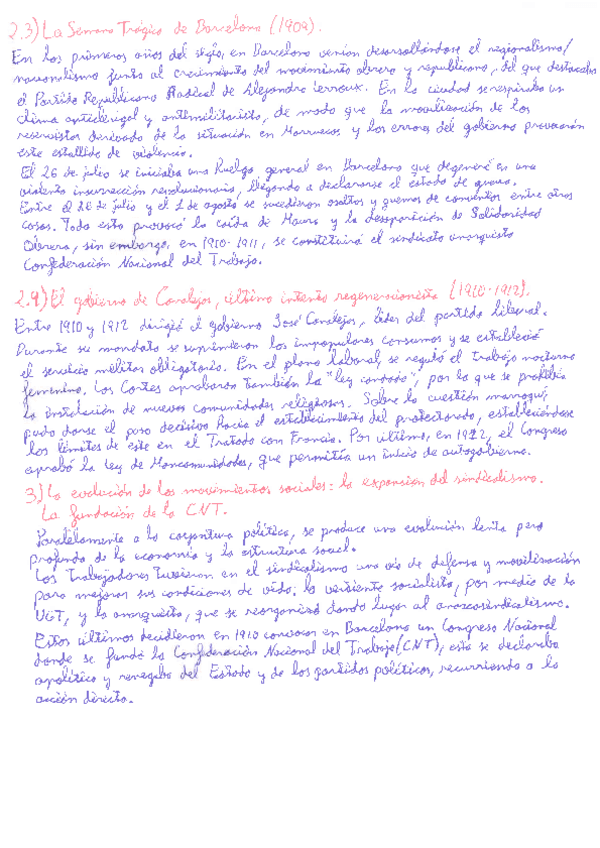 2.3) La Semana Trágica de Barcelona (1909).
En los primeros años del siglo, en Barcelona venían desarrollándose el regionalismo/
nacionalismo junto al crecimiento del movimiento obrero y republicano, del que destacaba
el Partido Republicano Radical de Alejandro Lerroux. En la ciudad se respiraba un
clima anticlerigal y antimilitarista, de modo que la movilización de los
reservistas derivado de la situación en Marruecos y los errores del gobierno provocarón
este estallido de violencia.
El 26 de julio se iniciaba una Huelga general en Barcelona que degeneró en una
violenta insurrección revolucionaria, llegando a declararse el estado de guerra.
Entre el 26 de julio y el 1 de agosto se sucedieron asaltos y quemas de conventos entre otras
cosas. Todo esto provocó la caída de Maura y la desaparición de Solidaridad
Obrera, sin embargo, en 1910-1911, se constituirá el sindicato anarquista
Confederación Nacional del Trabajo.
2.4) El gobierno de Canalejas, último intento regeneracionista (1910-1912).
Entre 1910 y 1912 dirigió el gobierno José Canalejas, líder del partido liberal.
Durante su mandato se suprimieron los impopulares consumos y se estableció
el servicio militar obligatorio. En el plano laboral se reguló el trabajo nocturno
femenino. Las Cortes aprobaron también la "ley candado", por la que se prohibía
la instalación de nuevas comunidades religiosas. Sobre la cuestión marroquí,
pudo darse el paso decisivo hacia el establecimiento del protectorado, estableciéndose
los límites de este en el Tratado con Francia. Por último, en 1912, el Congreso
aprobó la ley de Mancomunidades, que permitía un inicio de autogobierno.
3) La evolución de los movimientos sociales: la expansión del sindicalismo.
La fundación de la CNT.
Paralelamente a la coyuntura política, se produce una evolución lenta pero
profunda de la economía y la estructura social.
Los trabajadores tuvieron en el sindicalismo una vía de defensa y movilización
para mejorar sus condiciones de vida: la vertiente socialista, por medio de la
UGT, y la anarquista, que se reorganizó dando lugar al anarcosindicalismo.
Estos últimos decidieron en 1910 convocar en Barcelona un Congreso Nacional
donde se fundó la Confederación Nacional del Trabajo (CNT), esta se declaraba
apolítica y renegaba del Estado y de los partidos políticos, recurriendo a la
acción directa.